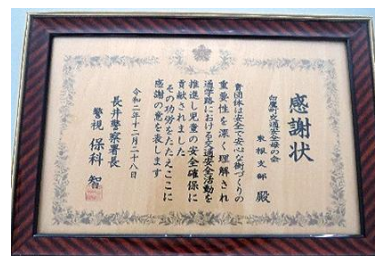 感謝状
白鷹町交通安全母の会
東根支部 殿
貴団体は安全で安心な街づくりの
重要性を深く理解され
通学路における交通安全活動を
推進し児童の安全確保に
貢献されました
その功労をたたえここに
感謝の意を表します
令和二年十二月二十八日
長井警察署長
警視 保科 智